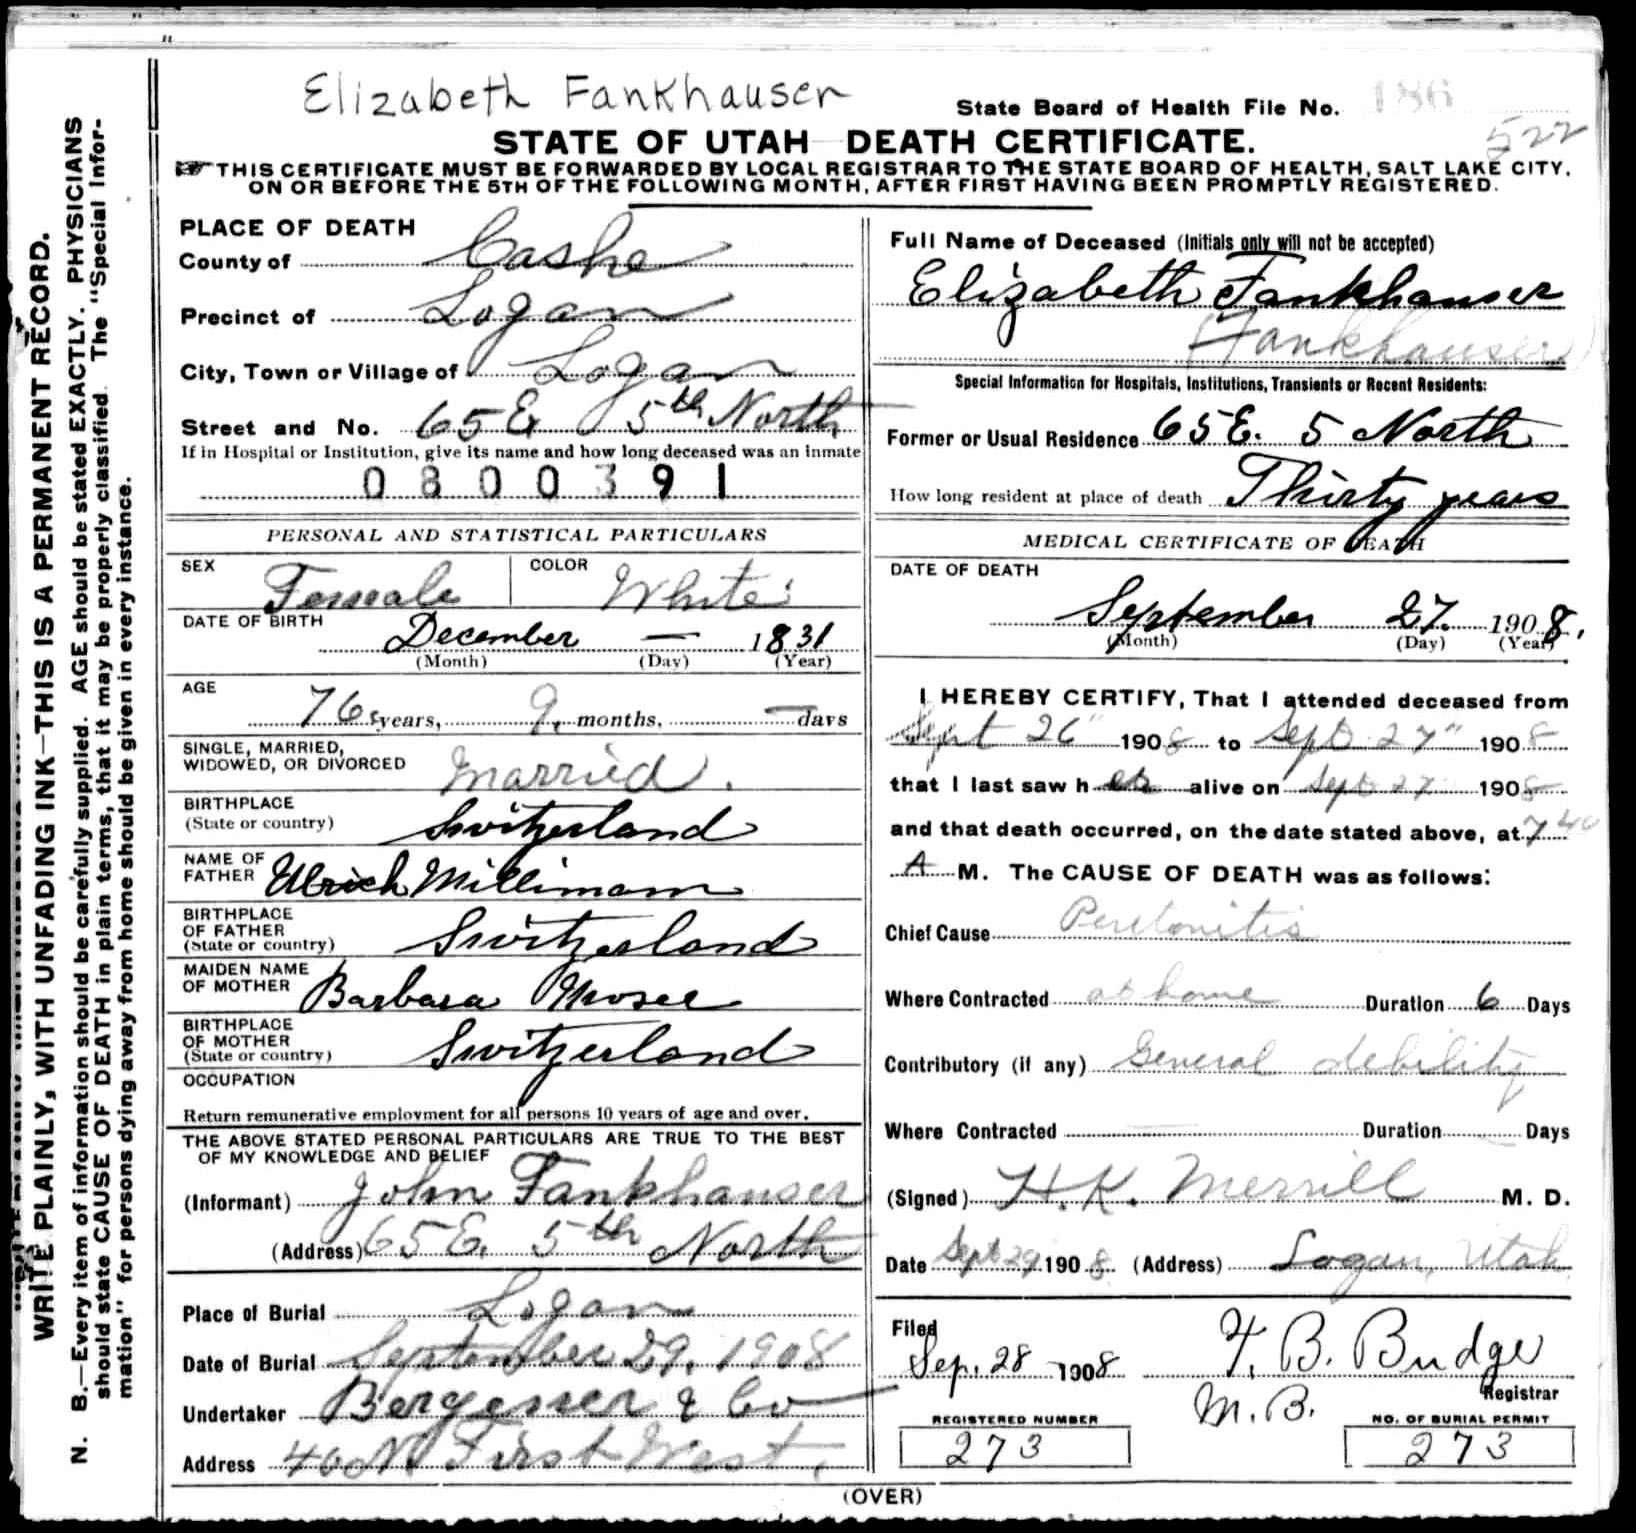 Elizabeth Fankhauser
State Board of Health File No. 186
522
STATE OF UTAH DEATH CERTIFICATE.
THIS CERTIFICATE MUST BE FORWARDED BY LOCAL REGISTRAR TO THE STATE BOARD OF HEALTH, SALT LAKE CITY,
ON OR BEFORE THE 5TH OF THE FOLLOWING MONTH, AFTER FIRST HAVING BEEN PROMPTLY REGISTERED.
WRITE PLAINLY, WITH UNFADING INK—THIS IS A PERMANENT RECORD.
N. B.—Every item of information should be carefully supplied. AGE should be stated EXACTLY. PHYSICIANS
should state CAUSE OF DEATH in plain terms, that it may be properly classified. The "Special Infor-
mation" for persons dying away from home should be given in every instance.
PLACE OF DEATH
County of Cashe
Precinct of Logan
City, Town or Village of Logan
Street and No. 65 E 5th North
If in Hospital or Institution, give its name and how long deceased was an inmate
0800391
PERSONAL AND STATISTICAL PARTICULARS
SEX Female COLOR White
DATE OF BIRTH December — 1831
(Month) (Day) (Year)
AGE 76 years, 9 months, — days
SINGLE, MARRIED,
WIDOWED, OR DIVORCED Married.
BIRTHPLACE
(State or country) Switzerland
NAME OF
FATHER Ulrich Millimann
BIRTHPLACE
OF FATHER
(State or country) Switzerland
MAIDEN NAME
OF MOTHER Barbara Moser
BIRTHPLACE
OF MOTHER
(State or country) Switzerland
OCCUPATION
Return remunerative employment for all persons 10 years of age and over.
THE ABOVE STATED PERSONAL PARTICULARS ARE TRUE TO THE BEST
OF MY KNOWLEDGE AND BELIEF
(Informant) John Fankhauser
(Address) 65 E. 5th North
Place of Burial Logan
Date of Burial September 29, 1908
Undertaker Bergesner & Co
Address 40 N First West.
Full Name of Deceased (Initials only will not be accepted)
Elizabeth Fankhauser
(Fankhauser)
Special Information for Hospitals, Institutions, Transients or Recent Residents:
Former or Usual Residence 65 E. 5 North
How long resident at place of death Thirty years
MEDICAL CERTIFICATE OF DEATH
DATE OF DEATH
September 27. 1908.
(Month) (Day) (Year)
I HEREBY CERTIFY, That I attended deceased from
Sept 26" 1908 to Sept 27" 1908
that I last saw her alive on Sept 27 1908
and that death occurred, on the date stated above, at 7 40
A M. The CAUSE OF DEATH was as follows:
Chief Cause Peritonitis
Where Contracted at home Duration 6 Days
Contributory (if any) General debility
Where Contracted — Duration — Days
(Signed) H. K. Merrill M. D.
Date Sept 29 1908. (Address) Logan, Utah
Filed
Sep. 28 1908 F. B. Budge
Registrar
M. B.
REGISTERED NUMBER NO. OF BURIAL PERMIT
273 273
(OVER)